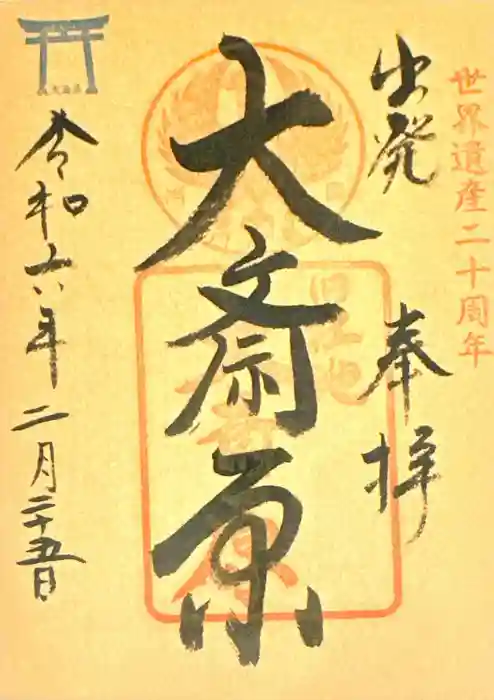 世界遺産二十周年
出発
奉拝
大斎原
旧社地
大斎原
令和六年二月二十五日